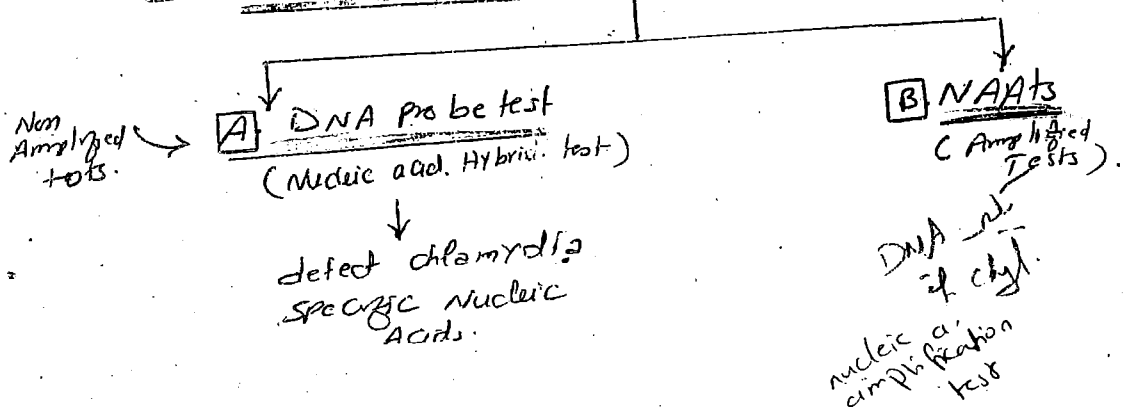 Non
Amplified
tests.
A. DNA probe test
(Nucleic acid. Hybridi. test)
detect chlamydia
specific Nucleic
Acids.
B NAAts
(Amplified
Tests).
DNA
of
nucleic a.
amplification
test